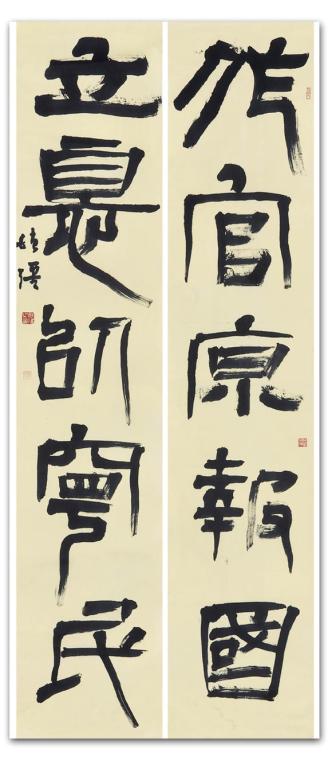 作官原報國
立悳寧民